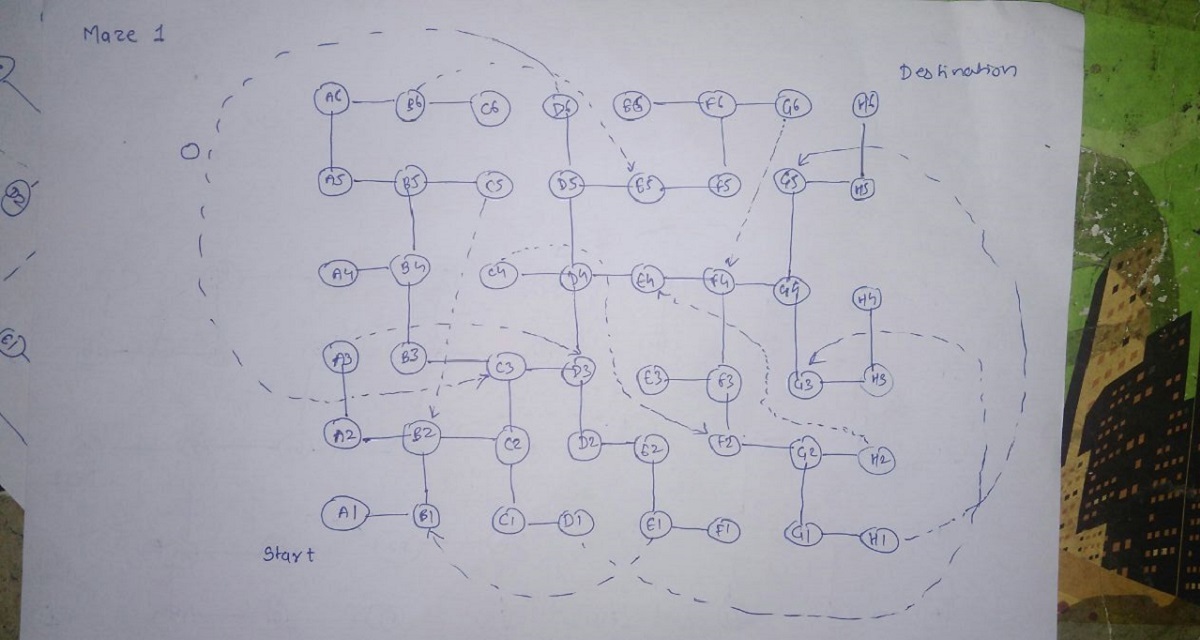 Maze 1
Destination
A6 B6 C6 D6 E6 F6 G6 H6
A5 B5 C5 D5 E5 F5 G5 H5
D2
A4 B4 C4 D4 E4 F4 G4 H4
E1
A3 B3 C3 D3 E3 F3 G3 H3
A2 B2 C2 D2 E2 F2 G2 H2
A1 B1 C1 D1 E1 F1 G1 H1
Start